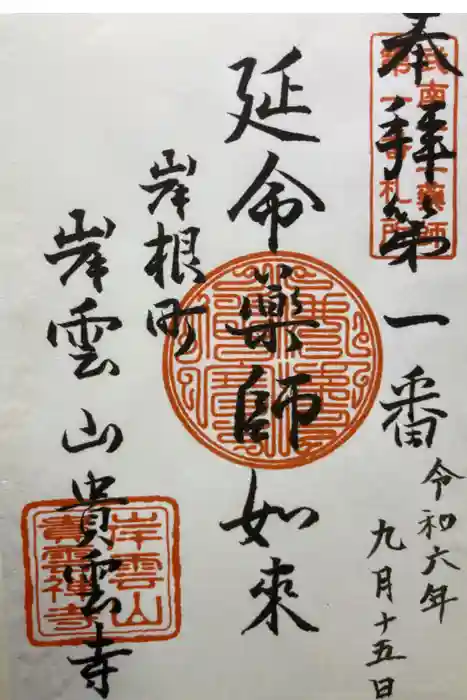 奉拝第一番
令和六年
九月十五日
延命薬師如来
岸根町
岸雲山貴雲寺
岸雲山
貴雲禅寺